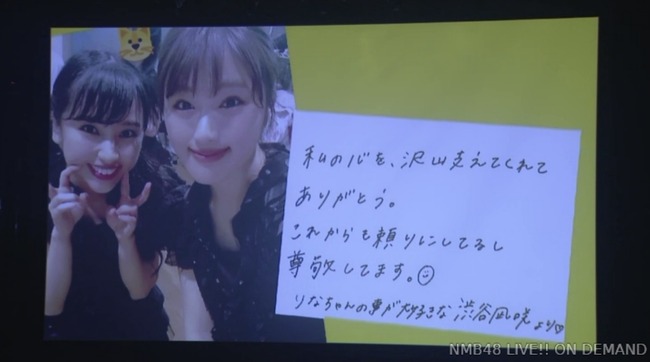 私の心を、沢山支えてくれて
ありがとう。
これからも頼りにしてるし
尊敬してます。
りなちゃんの事が大好きな 渋谷凪咲 より♡
NMB48 LIVE!! ON DEMAND